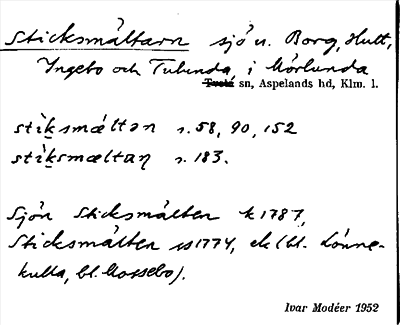 Sticksmåltarn sjö u. Borg, Hult,
Ingebo och Tulunda, i Mörlunda
Tveta sn, Aspelands hd, Klm. l.
stiksmæltan s. 58, 90, 152
stiksmæltaɳ s. 183.
Sjön Sticksmålten k 1787,
Sticksmålten ss 1774, ek (bl. Lönne-
kulla, bl. Mossebo).
Ivar Modéer 1952